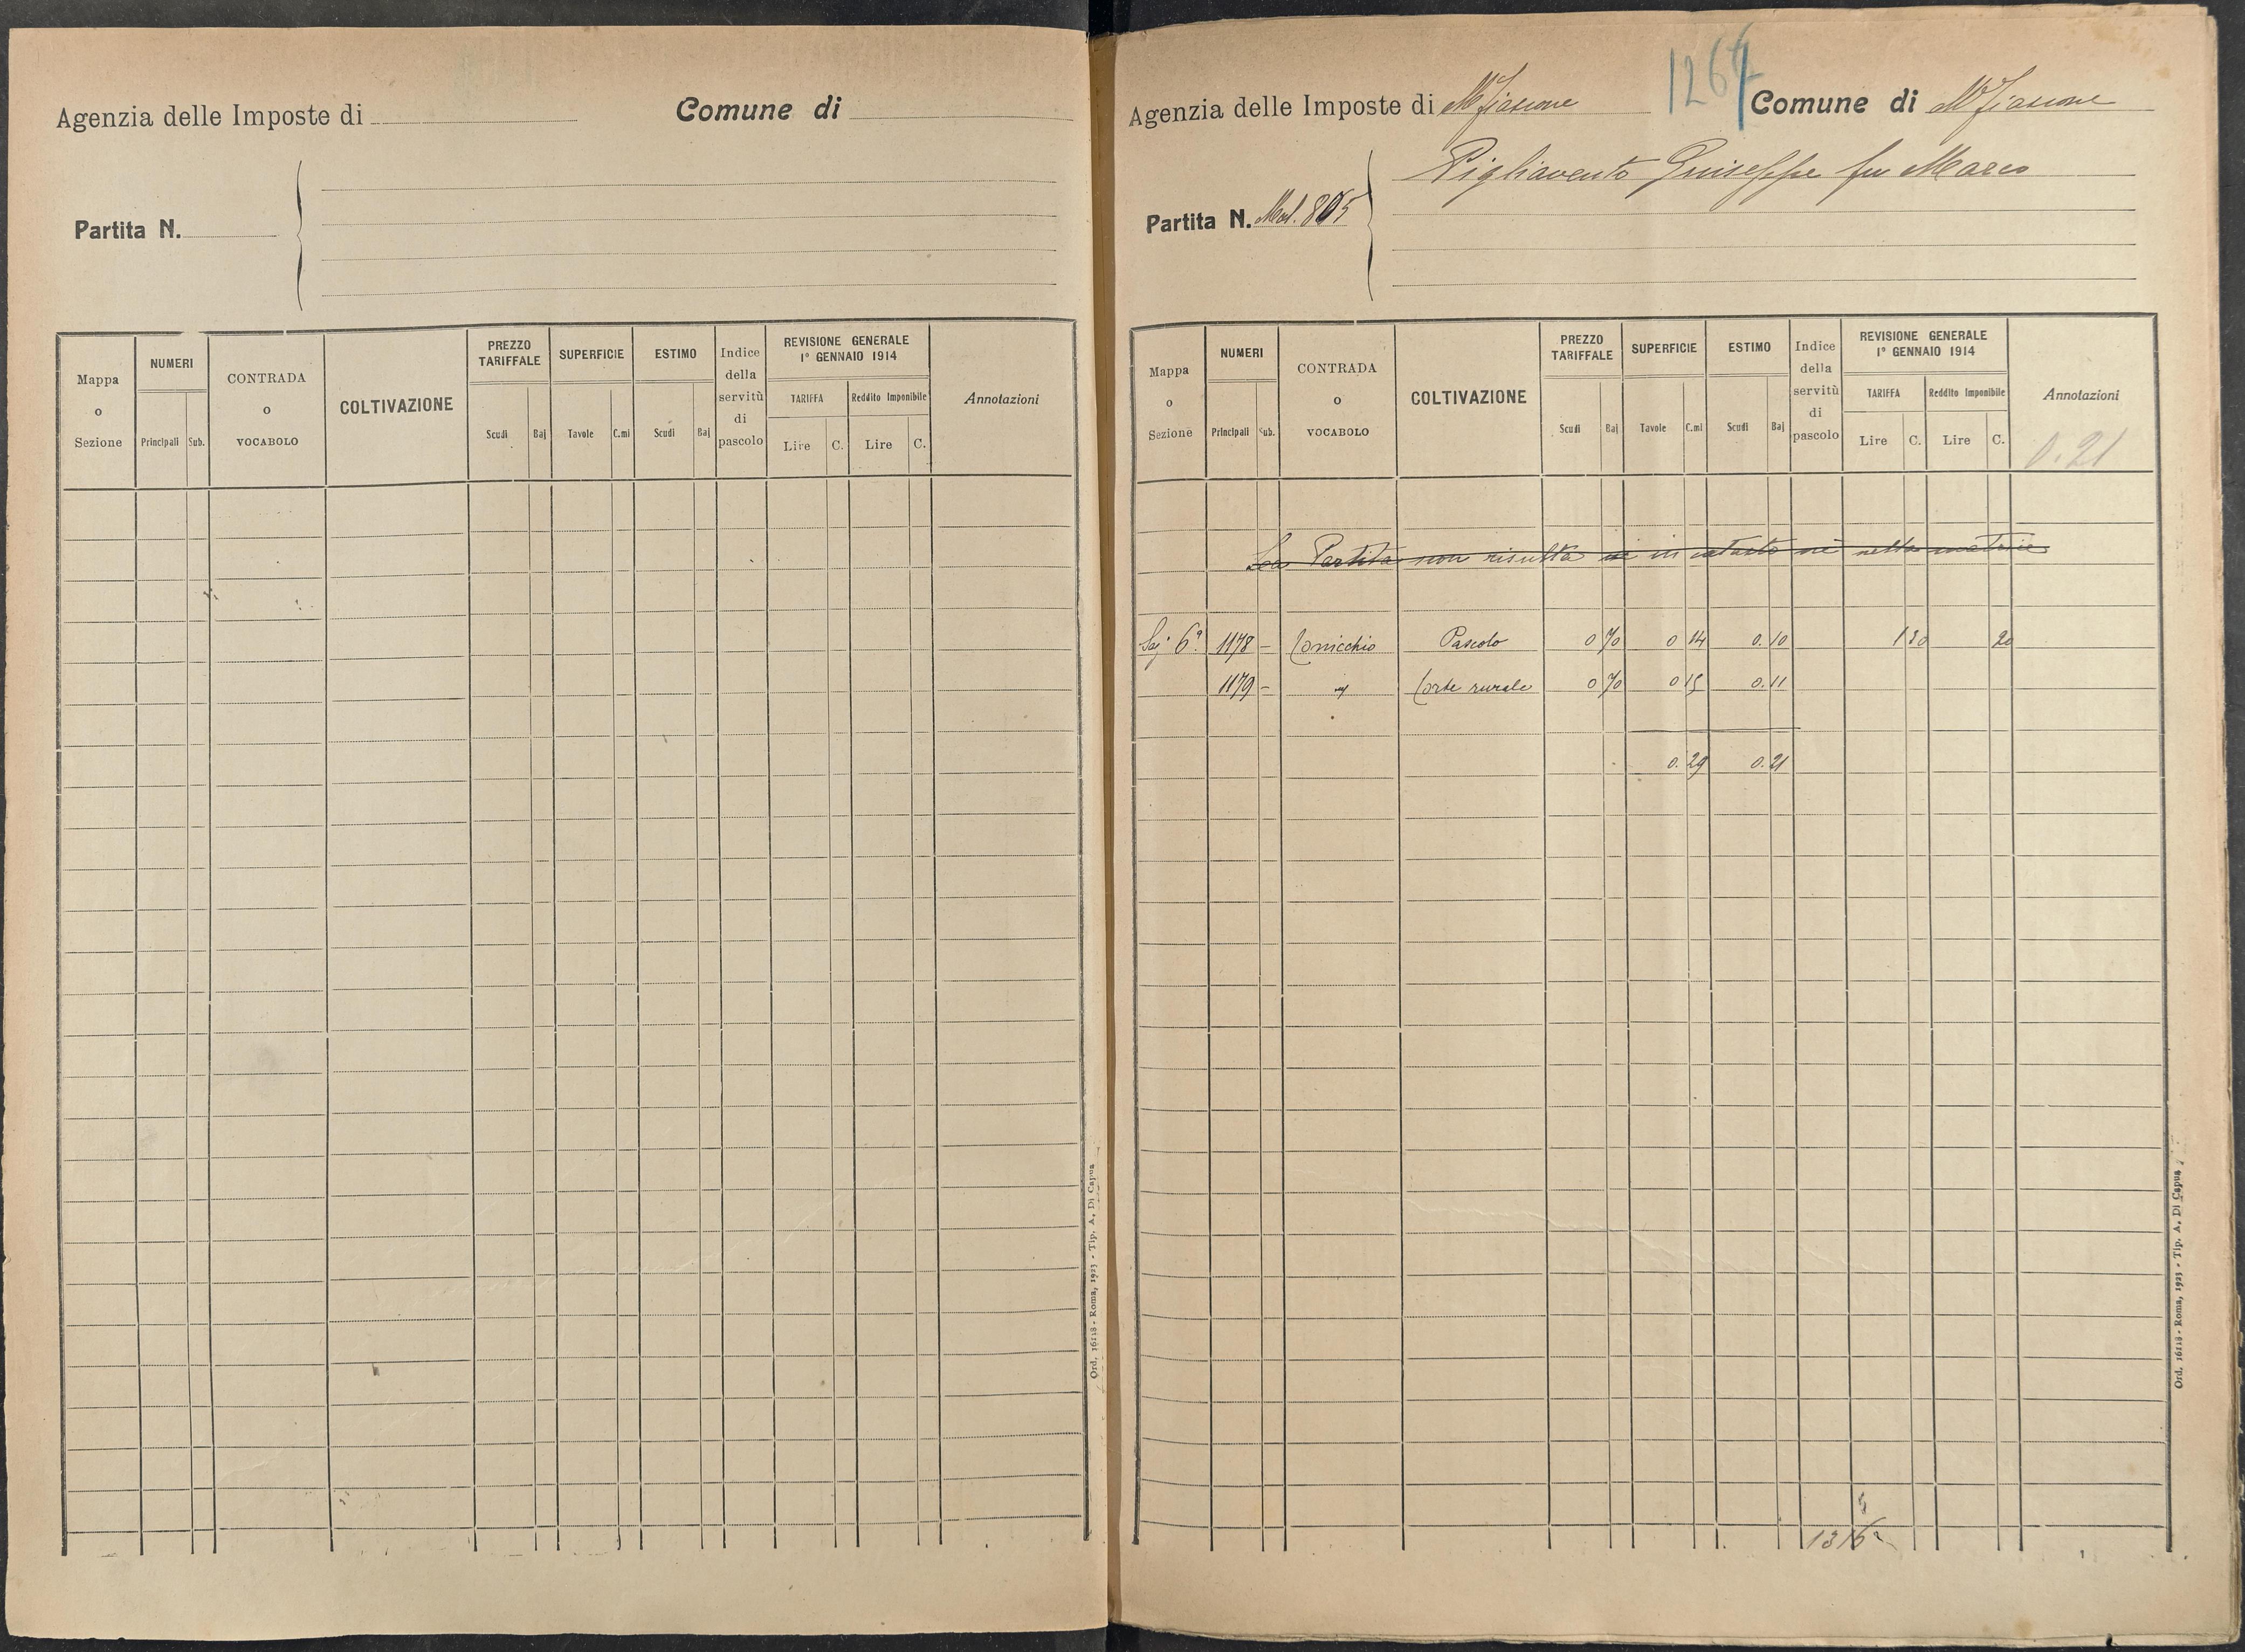 Agenzia delle Imposte di
Comune di
Partita N.
Mappa o Sezione
NUMERI
Principali Sub.
CONTRADA o VOCABOLO
COLTIVAZIONE
PREZZO TARIFFALE
Scudi Baj
SUPERFICIE
Tavole C.mi
ESTIMO
Scudi Baj
Indice della servitù di pascolo
REVISIONE GENERALE
1° GENNAIO 1914
TARIFFA
Lire C.
Reddito Imponibile
Lire C.
Annotazioni
Ord. 16118 - Roma, 1923 - Tip. A. Di Capua
1264
Agenzia delle Imposte di M.Fiascone Comune di M.Fiascone
Pigliavento Giuseppe fu Marco
Partita N. Mod. 805
Mappa o Sezione
NUMERI
Principali Sub.
CONTRADA o VOCABOLO
COLTIVAZIONE
PREZZO TARIFFALE
Scudi Baj
SUPERFICIE
Tavole C.mi
ESTIMO
Scudi Baj
Indice della servitù di pascolo
REVISIONE GENERALE
1° GENNAIO 1914
TARIFFA
Lire C.
Reddito Imponibile
Lire C.
Annotazioni
0.21
La Partita non risulta nè in catasto nè nella matrice
6ª 1178 - Cornicchio Pascolo 0 70 0 14 0.10 1 30 20
1179 - " Corte rurale 0 70 0 15 0.11
0.29 0.21
Ord. 16118 - Roma, 1923 - Tip. A. Di Capua